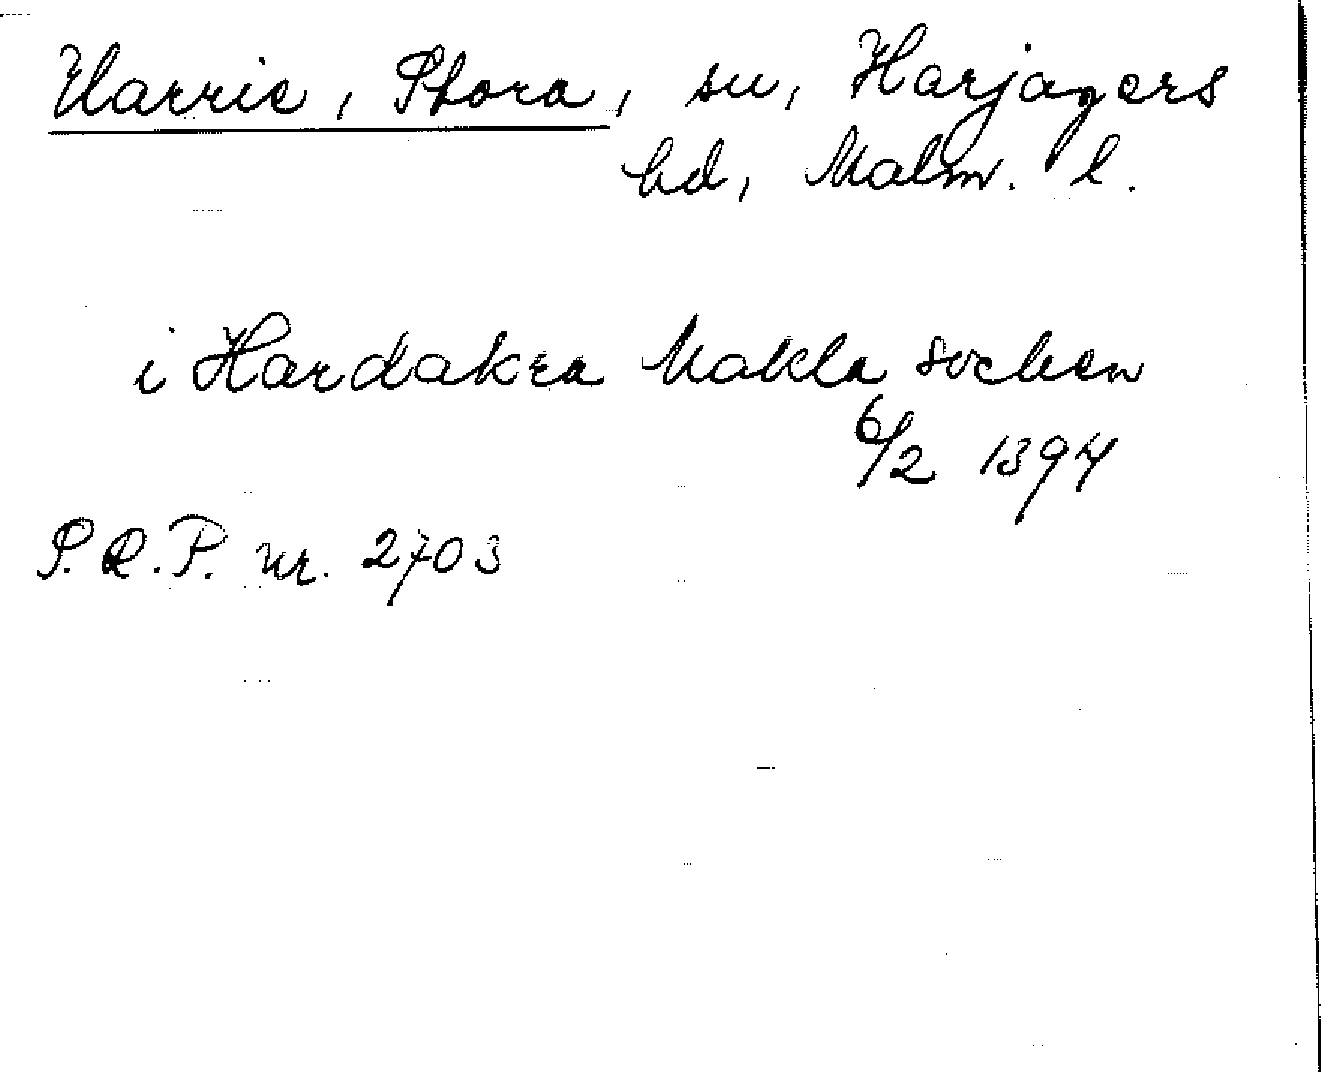 Harrie, Stora, sn, Harjagers
hd, Malm. l.
i Hardakra Makla sochen
6/2 1394
S.R.P. nr. 2703